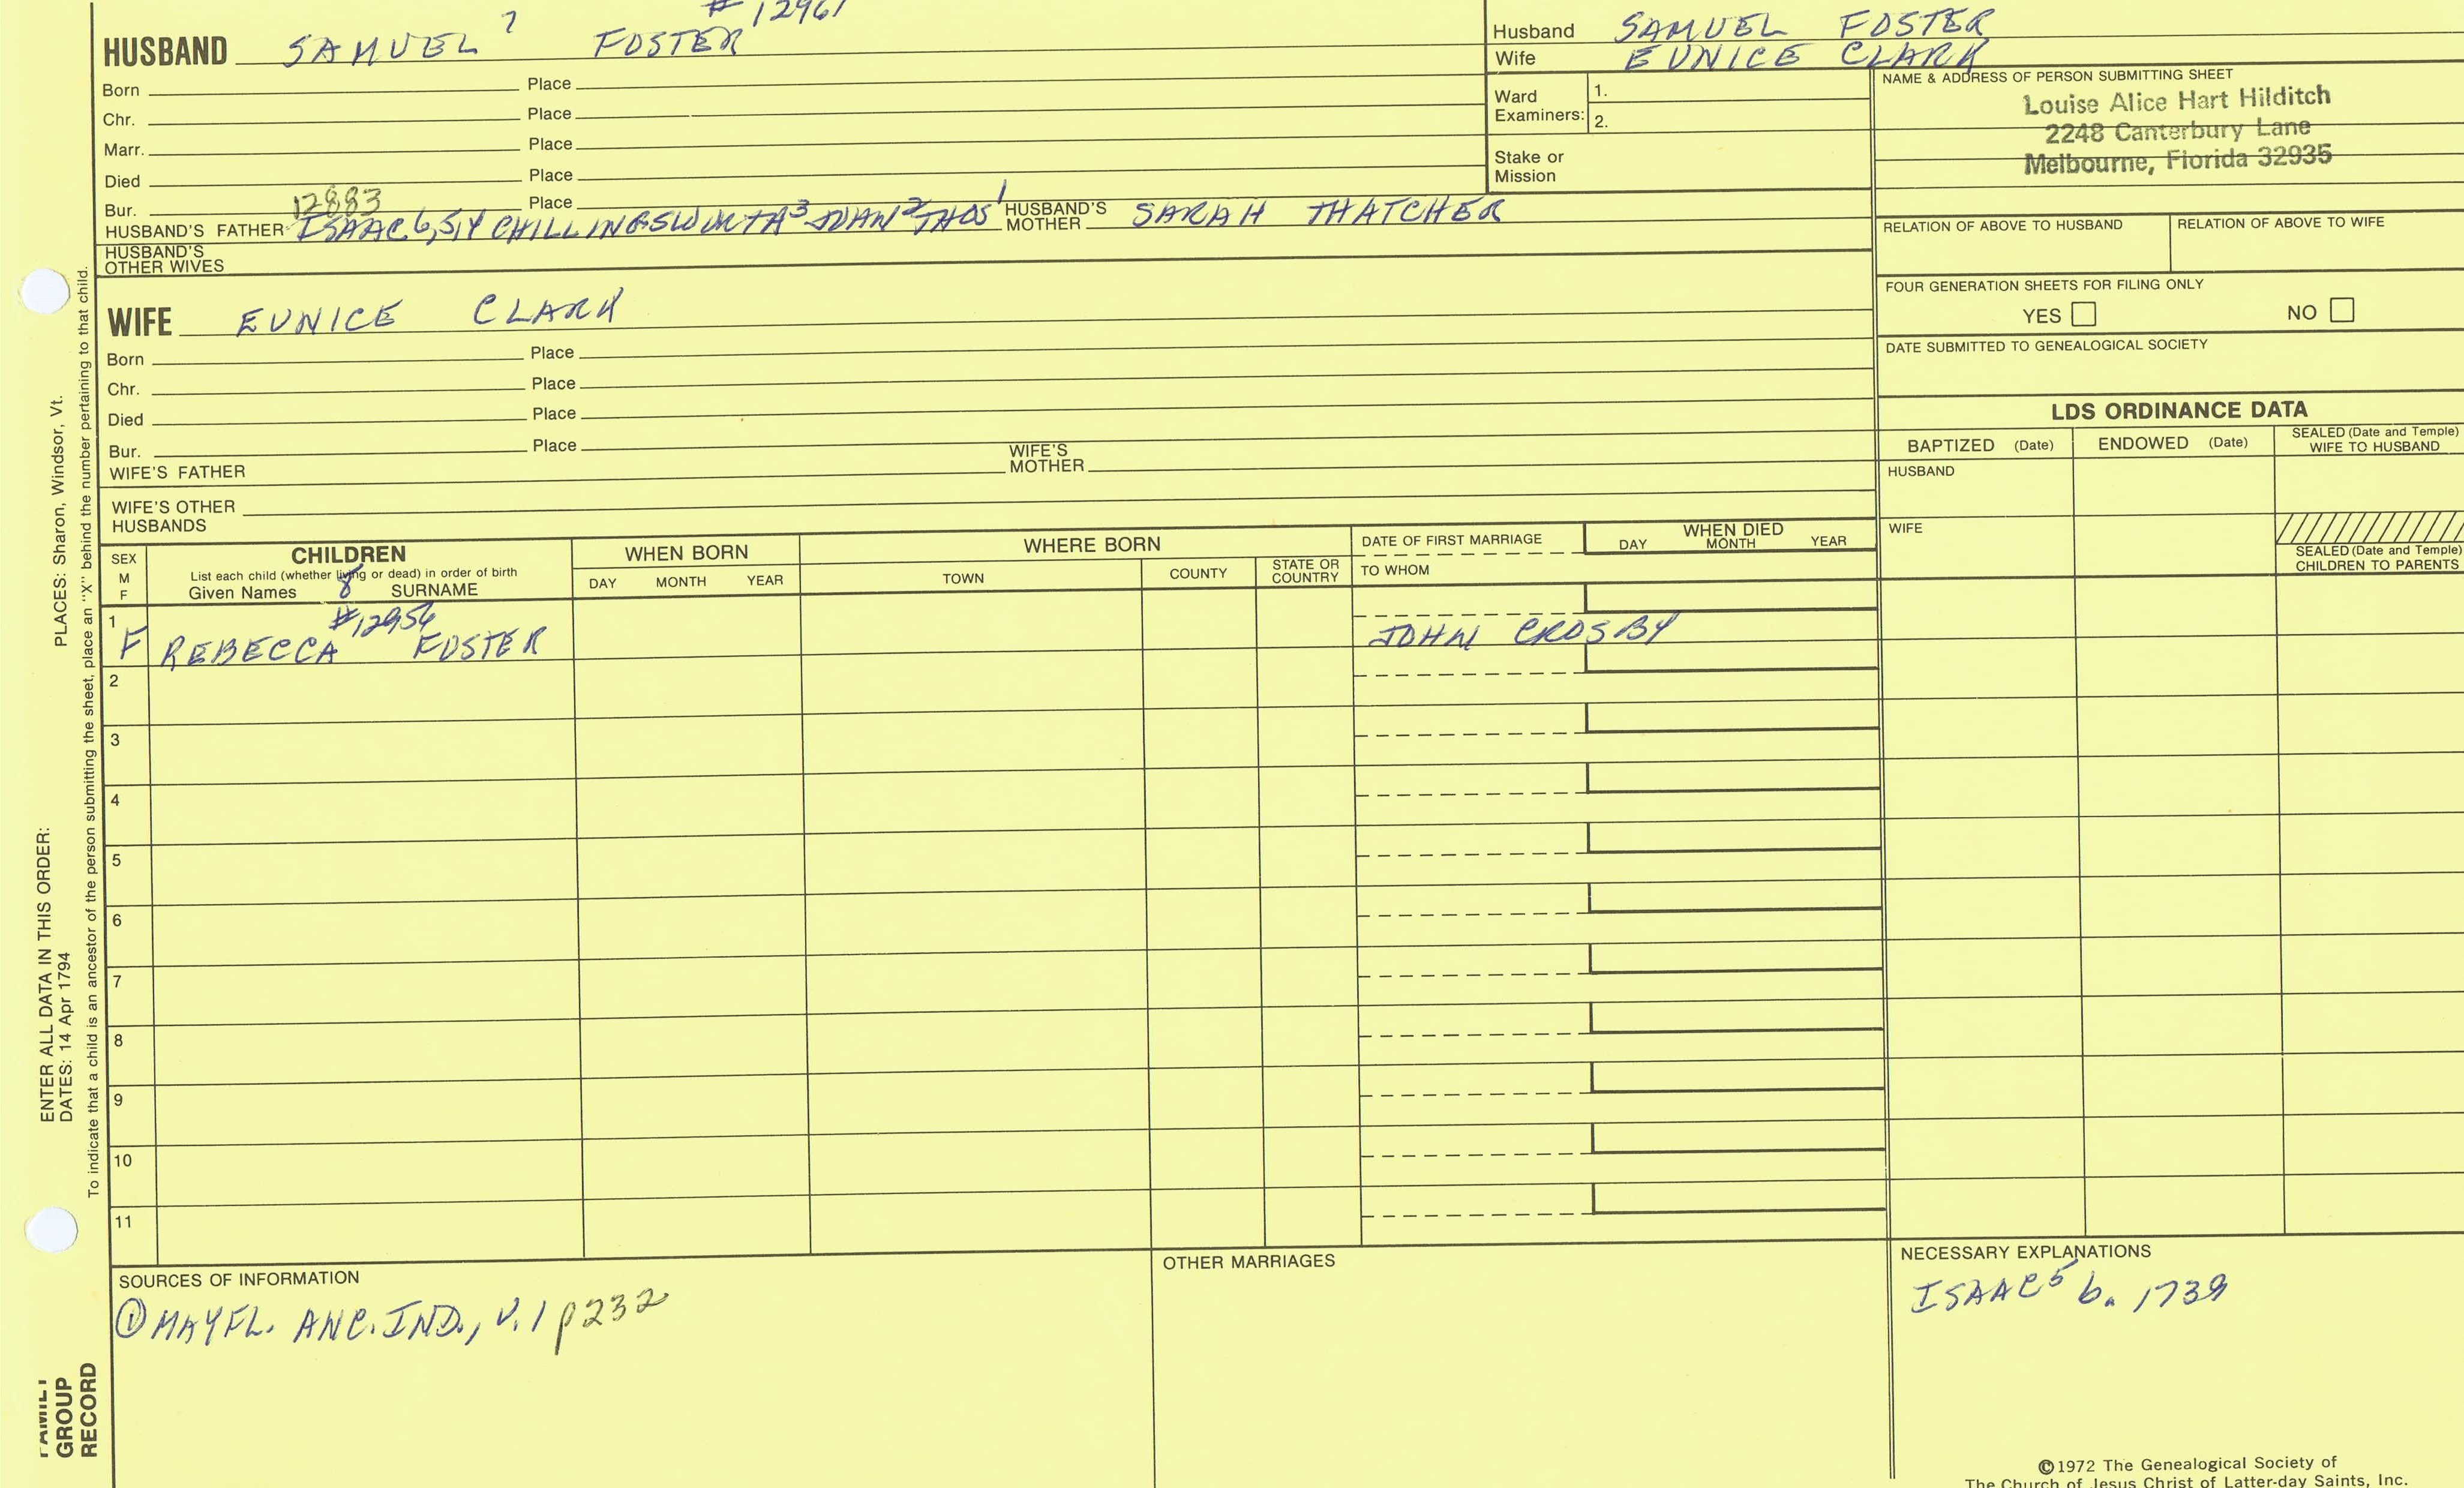 # 12961
HUSBAND SAMUEL 7 FOSTER
Born Place
Chr. Place
Marr. Place
Died Place
Bur. 12883 Place
HUSBAND'S FATHER ISAAC 6,5,4 CHILLINGSWORTH 3 2 THOS 1 HUSBAND'S MOTHER SARAH THATCHER
HUSBAND'S OTHER WIVES
WIFE EUNICE CLARK
Born Place
Chr. Place
Died Place
Bur. Place
WIFE'S FATHER WIFE'S MOTHER
WIFE'S OTHER HUSBANDS
Husband SAMUEL FOSTER
Wife EUNICE CLARK
Ward Examiners: 1.
2.
Stake or Mission
NAME & ADDRESS OF PERSON SUBMITTING SHEET
Louise Alice Hart Hilditch
2248 Canterbury Lane
Melbourne, Florida 32935
RELATION OF ABOVE TO HUSBAND RELATION OF ABOVE TO WIFE
FOUR GENERATION SHEETS FOR FILING ONLY
YES NO
DATE SUBMITTED TO GENEALOGICAL SOCIETY
LDS ORDINANCE DATA
BAPTIZED (Date) ENDOWED (Date) SEALED (Date and Temple) WIFE TO HUSBAND
HUSBAND
WIFE
SEALED (Date and Temple) CHILDREN TO PARENTS
SEX M F
CHILDREN
List each child (whether living or dead) in order of birth
Given Names 8 SURNAME
WHEN BORN
DAY MONTH YEAR
WHERE BORN
TOWN COUNTY STATE OR COUNTRY
DATE OF FIRST MARRIAGE
TO WHOM
WHEN DIED
DAY MONTH YEAR
#12956
1 F REBECCA FOSTER JOHN CROSBY
2
3
4
5
6
7
8
9
10
11
SOURCES OF INFORMATION
① MAYFL. ANC. IND., V.1 p232
OTHER MARRIAGES
NECESSARY EXPLANATIONS
ISAAC 5 b. 1739
©1972 The Genealogical Society of
The Church of Jesus Christ of Latter-day Saints, Inc.
ENTER ALL DATA IN THIS ORDER:
DATES: 14 Apr 1794
PLACES: Sharon, Windsor, Vt.
To indicate that a child is an ancestor of the person submitting the sheet, place an "X" behind the number pertaining to that child.
FAMILY
GROUP
RECORD